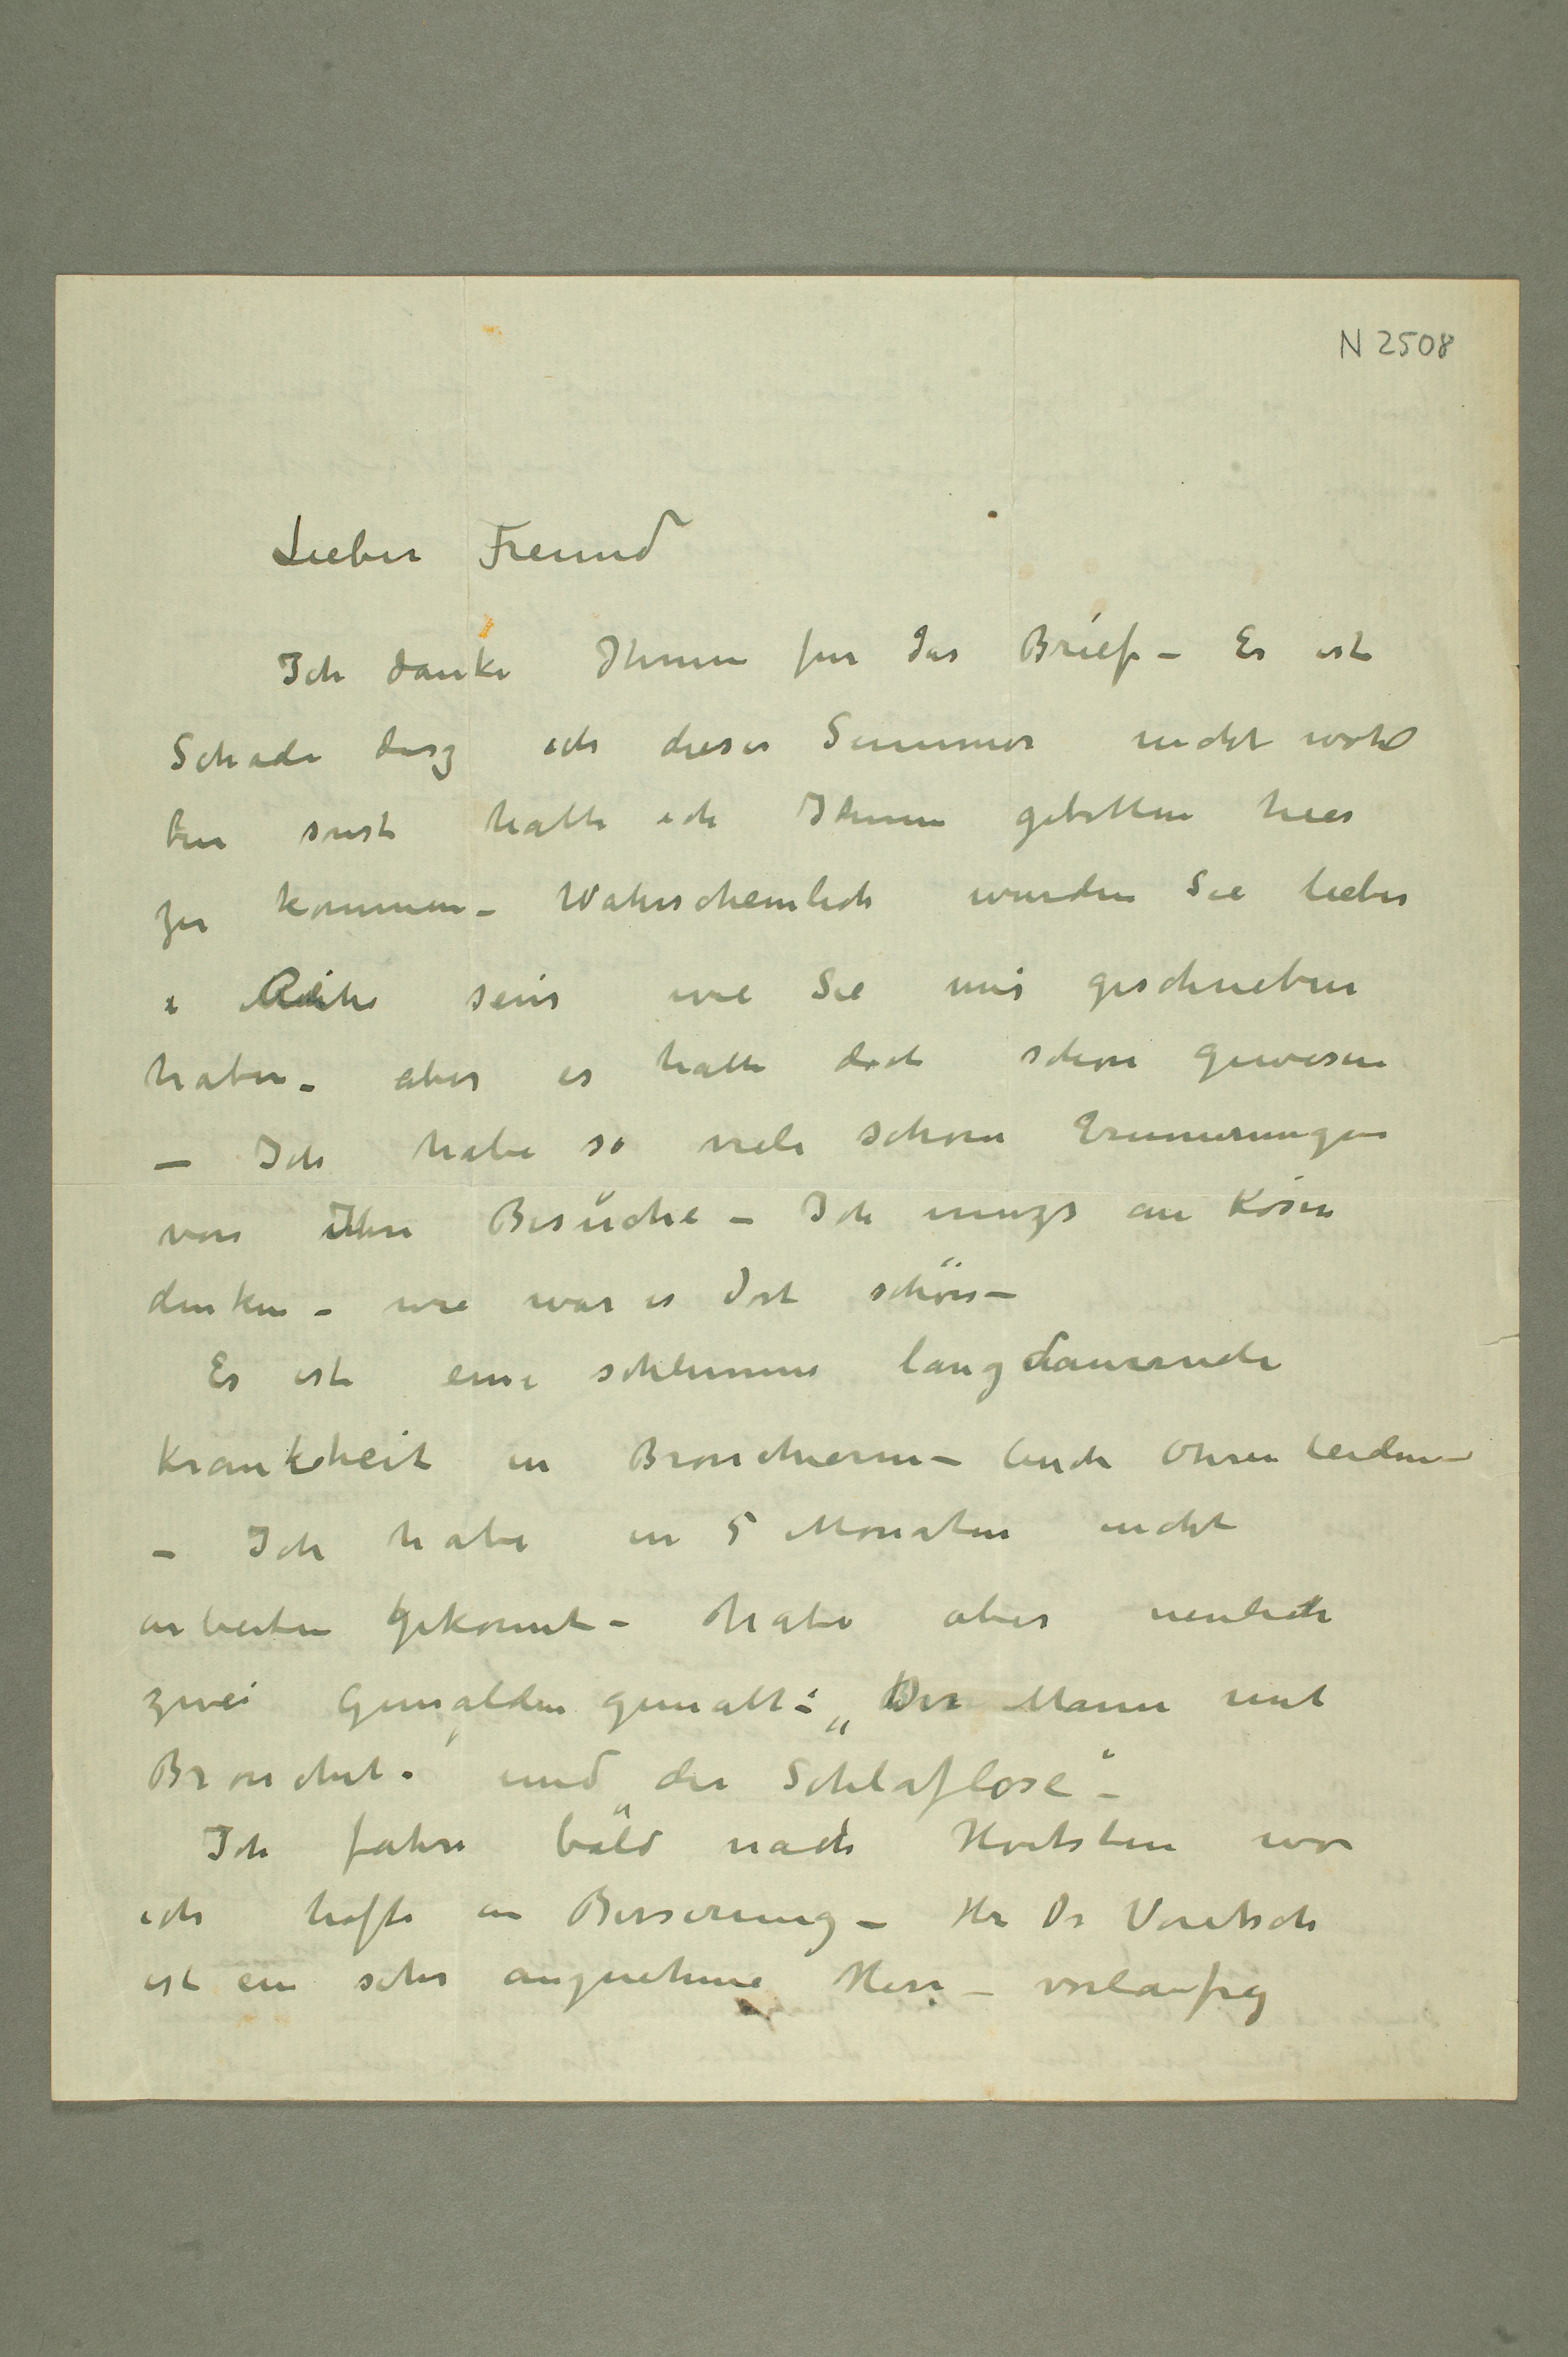 N 2508
Lieber Freund
Ich danke Ihnen fur das Brief – Es ist
Schade dasz ich dieser Summer nicht wohl
bin sonst hatte ich Ihnen gebetten hier
zu kommen – Wahrscheinlich wurden Sie lieber
i sein wie Sie mir geschrieben
haben – aber es hatte doch schon gewesen
– Ich habe so viele schone Erinnerungen
von Ihre Besuche – Ich muzs an Kösen
denken – wie war es dort schön –
Es ist eine schlimme langdauernde
Krankheit in Bronchieren – Auch Ohrenleiden –
– Ich habe in 5 Monaten nicht
arbeiten gekonnt – habe aber neulich
zwei Gemälden gemalt: „Der Mann mit
Bronchit." und „der Schlaflose" –
Ich fahre bald nach Hvitsten wo
ich hoffe an Besserung – Hr Dr Voretzsch
ist ein sehr angenehme Herr – vorlaufig